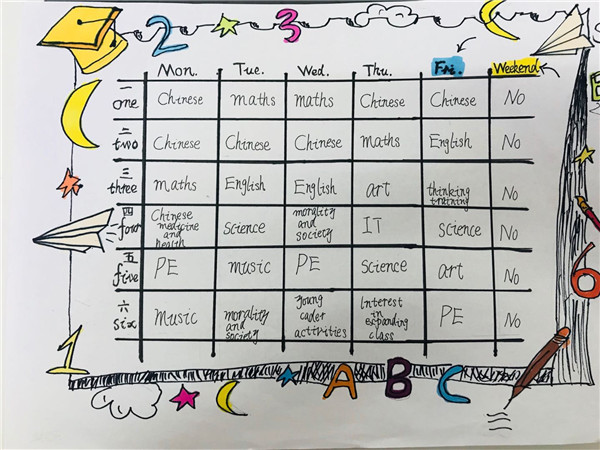 2 3
Mon. Tue. Wed. Thu. Fri. Weekend
一
one Chinese maths maths Chinese Chinese No
二
two Chinese Chinese Chinese maths English No
三
three maths English English art thinking training No
四
four Chinese medicine and health science morality and society IT science No
五
five PE music PE Science art No
六
six Music morality and society Young cadet activities Interest in expanding class PE No
6
1
A B C